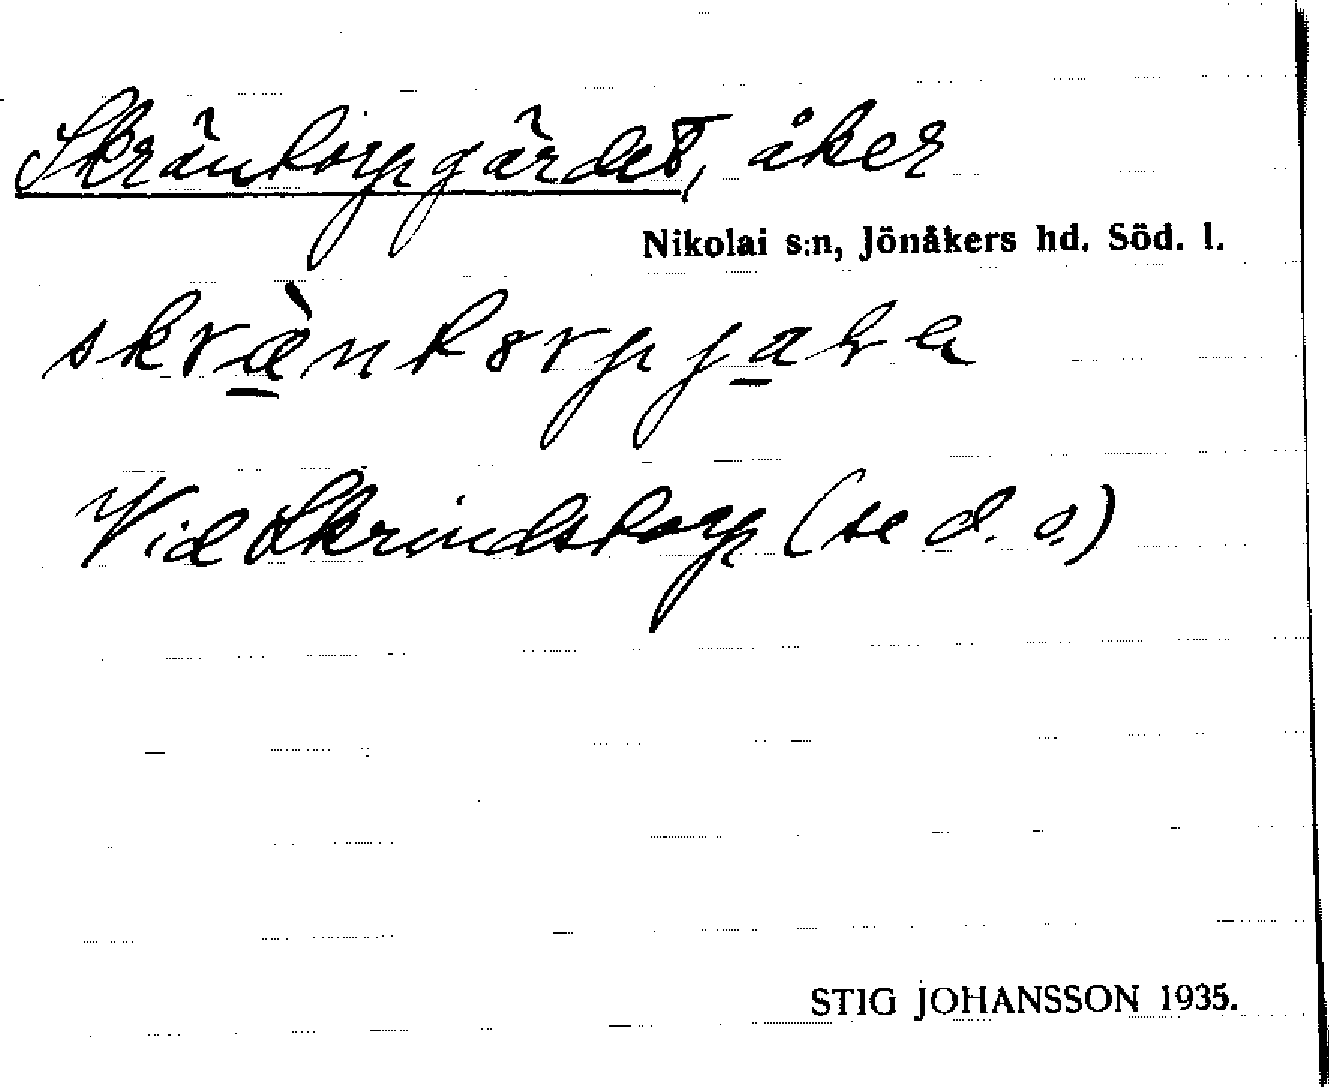 Skräntorpgärdet, åker
Nikolai s:n, Jönåkers hd. Söd. l.
Vid Skrindstorp (se d. o.)
STIG JOHANSSON 1935.